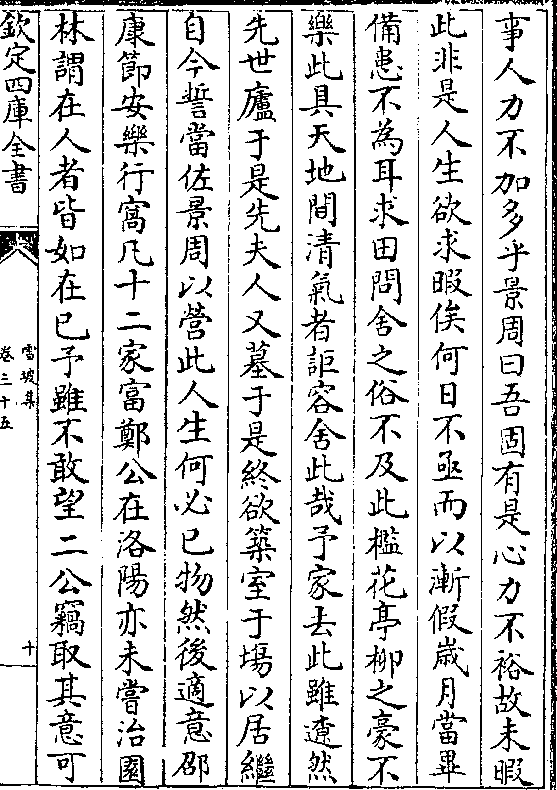 事人力不加多乎景周曰吾固有是心力不裕故未暇
此非是人生欲求暇俟何日不亟而以漸假歳月當畢
備患不為耳求田問舍之俗不及此檻花亭柳之豪不
樂此具天地間清氣者詎容舍此哉予家去此雖遼然
先世廬于是先夫人又墓于是終欲築室于場以居繼
自今誓當佐景周以營此人生何必已物然後適意邵
康節安樂行窩凡十二家富鄭公在洛陽亦未嘗治園
林謂在人者皆如在已予雖不敢望二公竊取其意可
欽定四庫全書
雪坡集
卷三十五
十